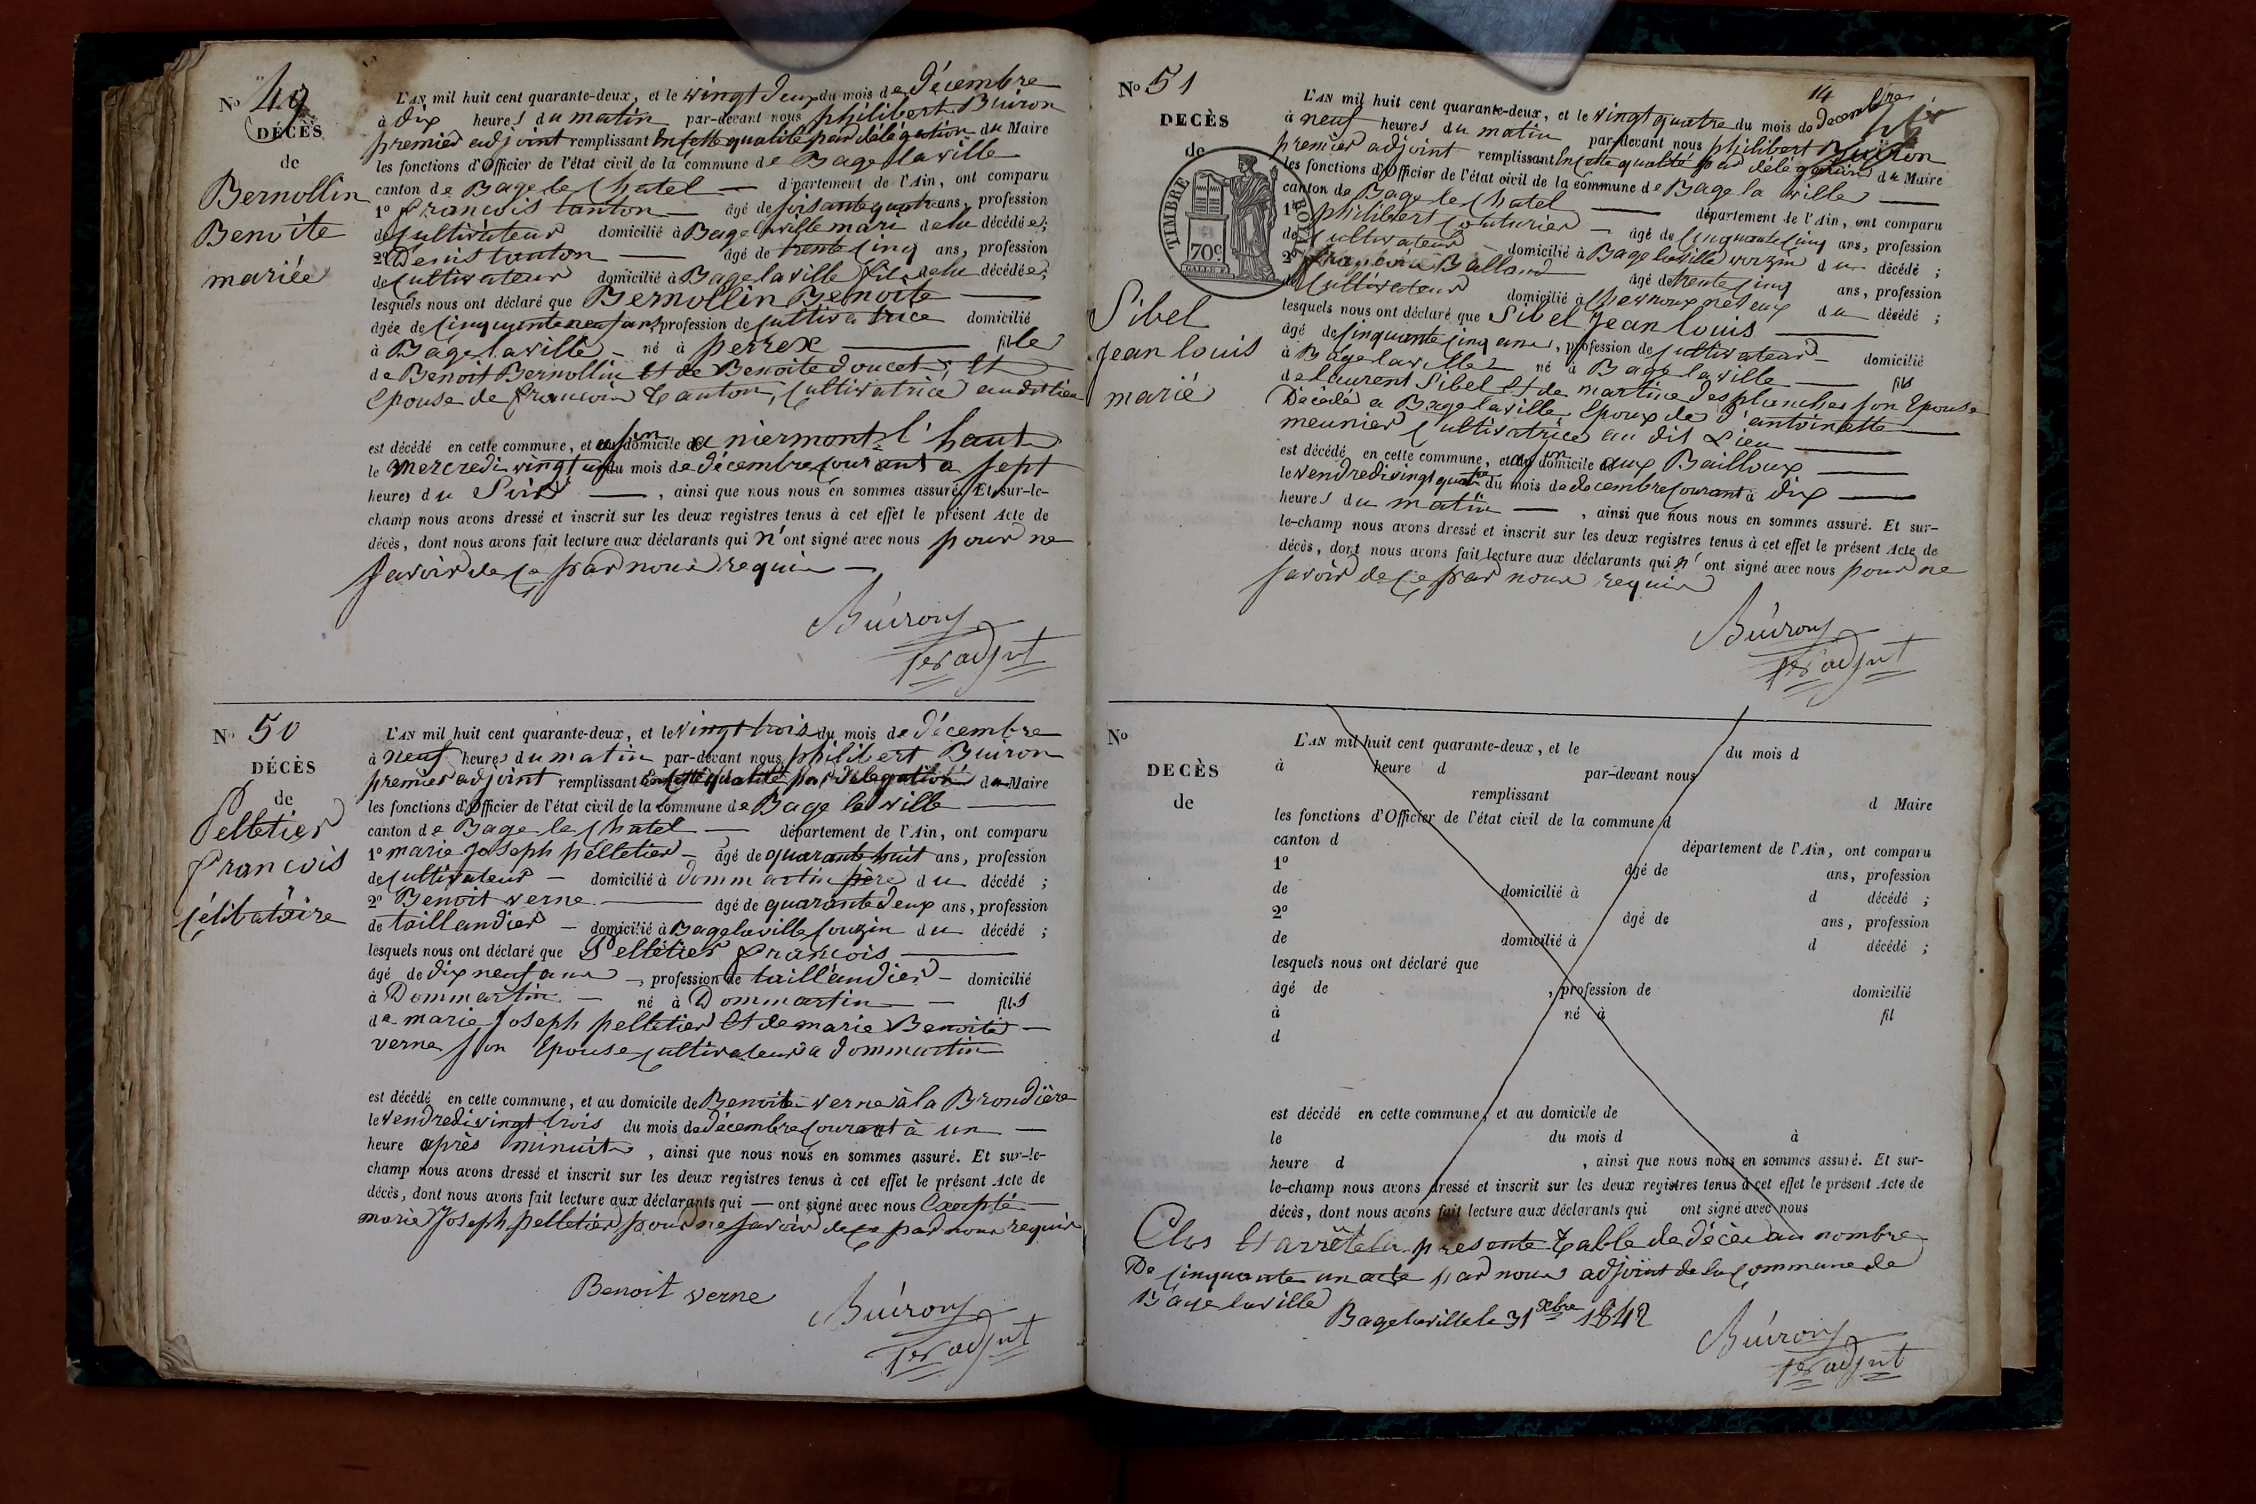 No 49
DÉCÈS
de
Bernollin
Benoite
mariée
L'AN mil huit cent quarante-deux, et le vingt deux du mois de décembre
à dix heures du matin par-devant nous philibert Buiron
premier adjoint remplissant En cette qualité par délégation du Maire
les fonctions d'Officier de l'état civil de la commune de Bage la ville
canton de Bage le Chatel — département de l'Ain, ont comparu
1º francois tanton — âgé de soisante quatre ans, profession
de Cultivateur domicilié à Bage laville mari de la décédée;
2º Denis tanton — âgé de trente cinq ans, profession
de Cultivateur domicilié à Bage laville fils de la décédée;
lesquels nous ont déclaré que Bernollin Benoite —
âgée de Cinquante neuf ans, profession de Cultivatrice domicilié
à Bage laville — né à perrex — fille
de Benoit Bernollin Et de Benoite doucet, Et
Epouse de francois tanton, Cultivatrice audit lieu
est décédé en cette commune, et au son domicile de a niermont l'haut
le mercredi vingt un du mois de décembre Courant a sept
heures du Soir —, ainsi que nous nous en sommes assuré. Et sur-le-
champ nous avons dressé et inscrit sur les deux registres tenus à cet effet le présent Acte de
décès, dont nous avons fait lecture aux déclarants qui n'ont signé avec nous pour ne
savoir de Ce par nous requis —
Buiron
1er adjnt
No 50
DÉCÈS
de
Pelletier
francois
Célibataire
L'AN mil huit cent quarante-deux, et le vingt trois du mois de décembre
à neuf heures du matin par-devant nous philibert Buiron
premier adjoint remplissant En cette qualité par délégation du Maire
les fonctions d'Officier de l'état civil de la commune de Bage la ville —
canton de Bage le Chatel — département de l'Ain, ont comparu
1º marie Joseph pelletier — âgé de quarante huit ans, profession
de Cultivateur — domicilié à dommartin père du décédé;
2º Benoit verne — âgé de quarante deux ans, profession
de taillandier — domicilié à Bage laville Couzin du décédé;
lesquels nous ont déclaré que Pelletier francois —
âgé de dix neuf ans —, profession de taillandier — domicilié
à Dommartin — né à Dommartin — fils
de marie Joseph pelletier Et de marie Benoite —
verne son Epouse Cultivateurs a dommartin
est décédé en cette commune, et au domicile de Benoit verne à la Brondière
le vendredi vingt trois du mois de décembre Courant à un —
heure après minuit, ainsi que nous nous en sommes assuré. Et sur-le-
champ nous avons dressé et inscrit sur les deux registres tenus à cet effet le présent Acte de
décès, dont nous avons fait lecture aux déclarants qui — ont signé avec nous Excepté —
marie Joseph pelletier pour ne savoir de Ce par nous requis
Benoit verne
Buiron
1er adjnt
14
No 51
DECÈS
de
TIMBRE ROYAL
70c
Sibel
Jean louis
marié
L'AN mil huit cent quarante-deux, et le vingt quatre du mois de décembre
à neuf heures du matin par-devant nous philibert Buiron
premier adjoint remplissant En cette qualité par délégation du Maire
les fonctions d'Officier de l'état civil de la commune de Bage la ville —
canton de Bage le Chatel — département de l'Ain, ont comparu
1º philibert Couturier — âgé de Cinquante cinq ans, profession
de Cultivateur — domicilié à Bage laville voizin du décédé;
2º francois Balland âgé de trente cinq ans, profession
de Cultivateur domicilié à du décédé;
lesquels nous ont déclaré que Sibel Jean louis —
âgé de Cinquante cinq ans, profession de Cultivateur — domicilié
à Bage laville né à Bage laville — fils
de laurent Sibel Et de martine desplanches son Epouse
Décédé a Bage laville Epoux de d'antoinette
meunier Cultivatrice au dit Lieu —
est décédé en cette commune, et au son domicile de aux Bailloux —
le vendredi vingt quatre du mois de décembre Courant à dix —
heures du matin —, ainsi que nous nous en sommes assuré. Et sur-
le-champ nous avons dressé et inscrit sur les deux registres tenus à cet effet le présent Acte de
décès, dont nous avons fait lecture aux déclarants qui n'ont signé avec nous pour ne
savoir de Ce par nous requis
Buiron
1er adjnt
No
DECÈS
de
L'AN mil huit cent quarante-deux, et le du mois d
à heure d par-devant nous
remplissant d Maire
les fonctions d'Officier de l'état civil de la commune d
canton d département de l'Ain, ont comparu
1º âgé de ans, profession
de domicilié à d décédé;
2º âgé de ans, profession
de domicilié à d décédé;
lesquels nous ont déclaré que
âgé de , profession de domicilié
à né à fil
d
est décédé en cette commune, et au domicile de
le du mois d à
heure d , ainsi que nous nous en sommes assuré. Et sur-
le-champ nous avons dressé et inscrit sur les deux registres tenus à cet effet le présent Acte de
décès, dont nous avons fait lecture aux déclarants qui ont signé avec nous
Clos Et arrêté la présente table de décès au nombre
De Cinquante un acte par nous adjoint de la Commune de
Bage laville
Bage laville le 31 xbre 1842
Buiron
1er adjnt